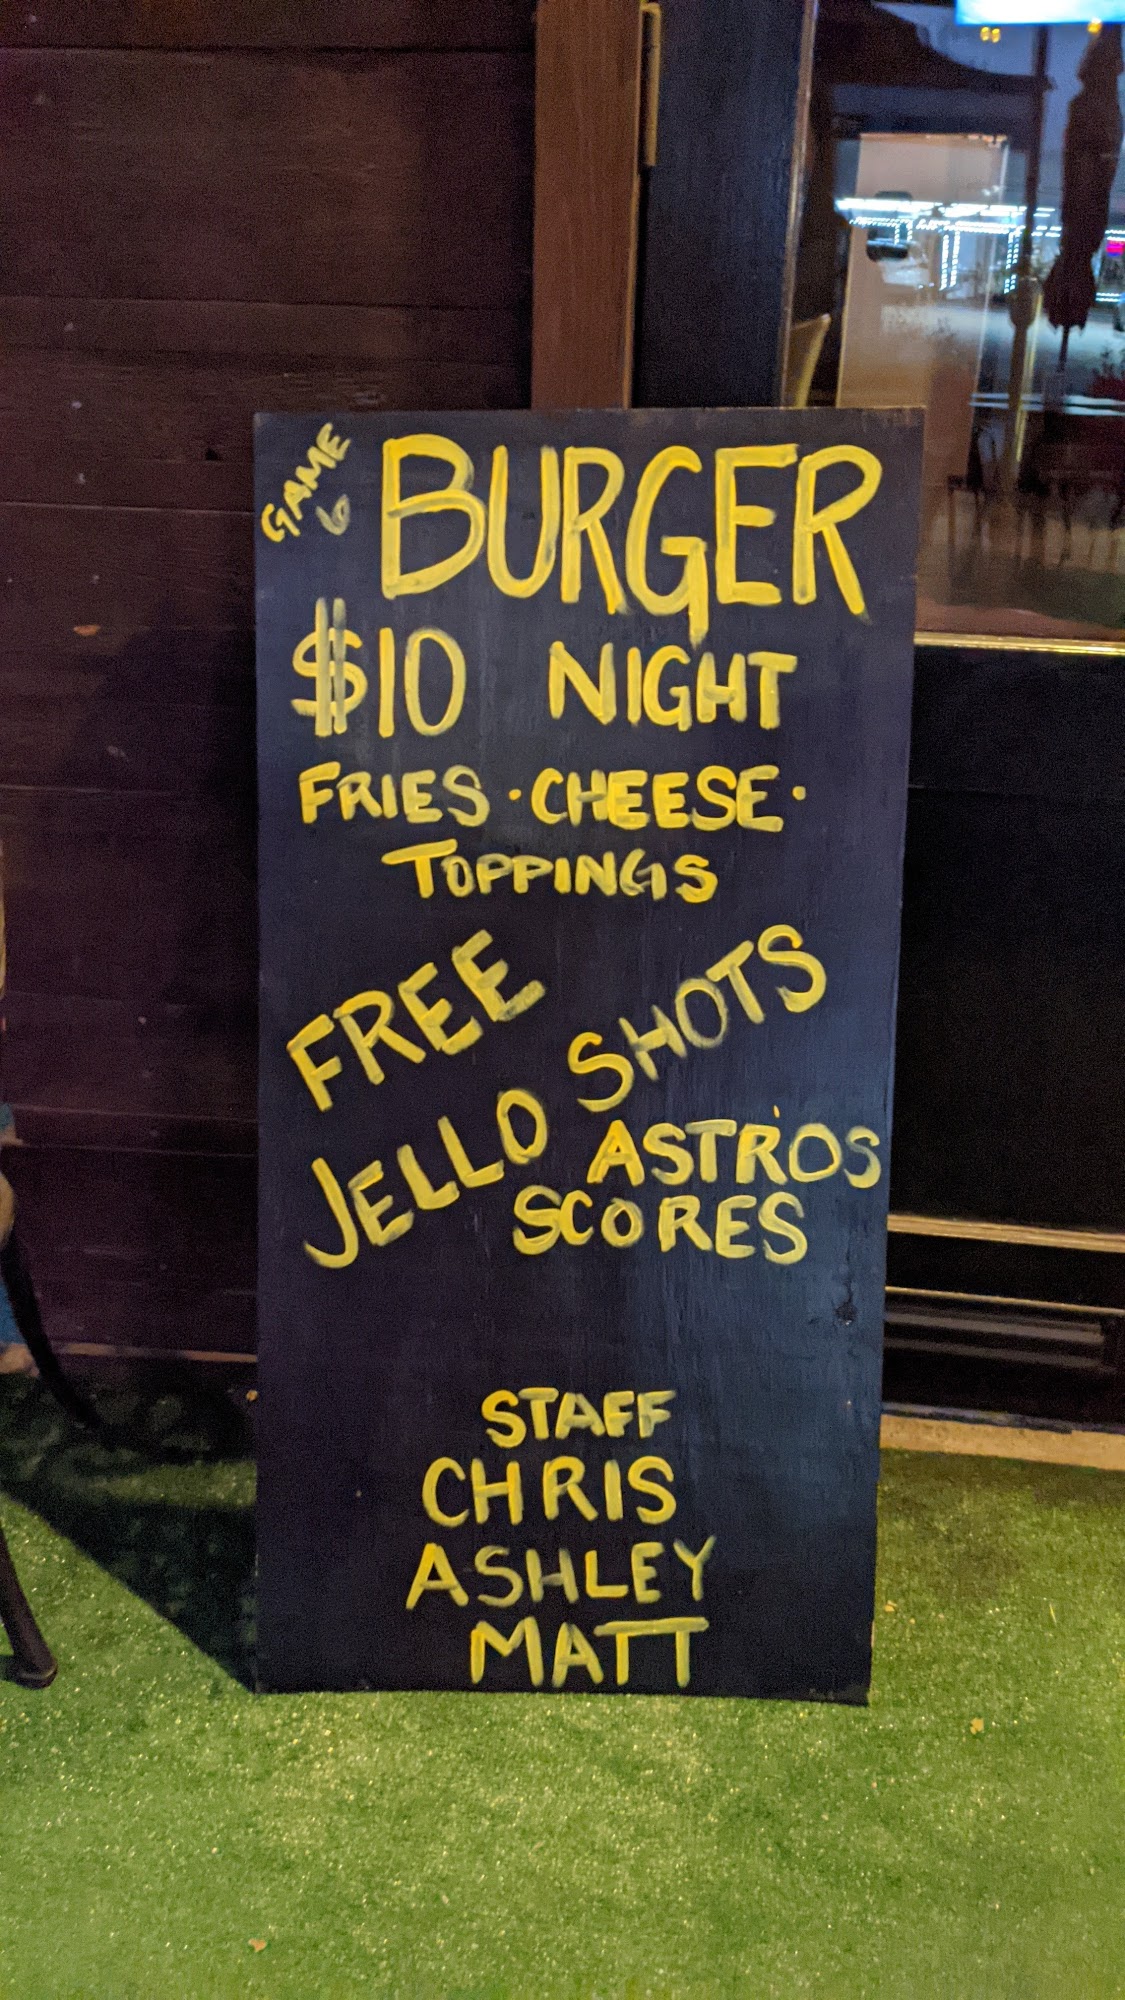 GAME
6
BURGER
$10 NIGHT
FRIES · CHEESE ·
TOPPINGS
FREE
JELLO SHOTS
ASTROS
SCORES
STAFF
CHRIS
ASHLEY
MATT